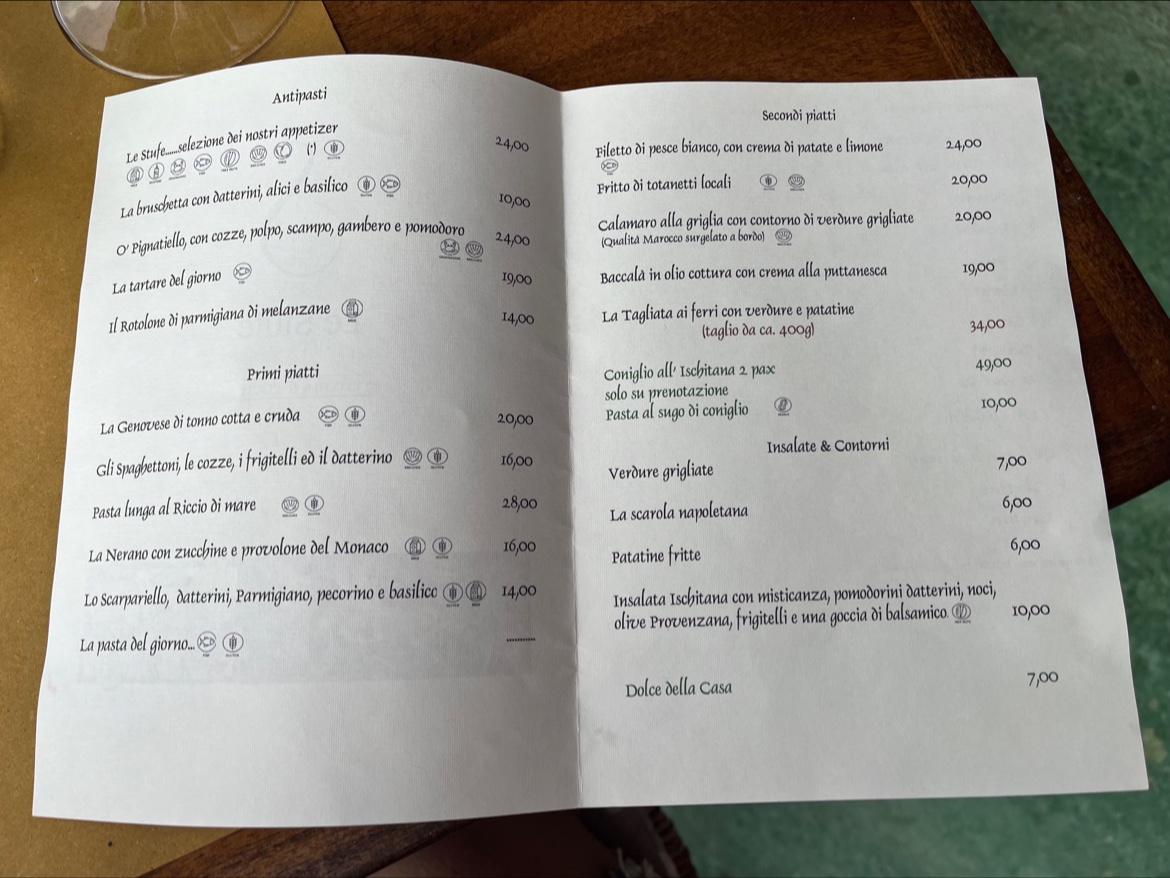 Antipasti
Le Stufe.....selezione dei nostri appetizer 24,00
(*)
La bruschetta con datterini, alici e basilico 10,00
O' Pignatiello, con cozze, polpo, scampo, gambero e pomodoro 24,00
La tartare del giorno 19,00
Il Rotolone di parmigiana di melanzane 14,00
Primi piatti
La Genovese di tonno cotta e cruda 20,00
Gli Spaghettoni, le cozze, i frigitelli ed il datterino 16,00
Pasta lunga al Riccio di mare 28,00
La Nerano con zucchine e provolone del Monaco 16,00
Lo Scarpariello, datterini, Parmigiano, pecorino e basilico 14,00
La pasta del giorno... ..........
Secondi piatti
Filetto di pesce bianco, con crema di patate e limone 24,00
Fritto di totanetti locali 20,00
Calamaro alla griglia con contorno di verdure grigliate 20,00
(Qualità Marocco surgelato a bordo)
Baccalà in olio cottura con crema alla puttanesca 19,00
La Tagliata ai ferri con verdure e patatine
(taglio da ca. 400g) 34,00
Coniglio all' Ischitana 2 pax 49,00
solo su prenotazione
Pasta al sugo di coniglio 10,00
Insalate & Contorni
Verdure grigliate 7,00
La scarola napoletana 6,00
Patatine fritte 6,00
Insalata Ischitana con misticanza, pomodorini datterini, noci,
olive Provenzana, frigitelli e una goccia di balsamico. 10,00
Dolce della Casa 7,00